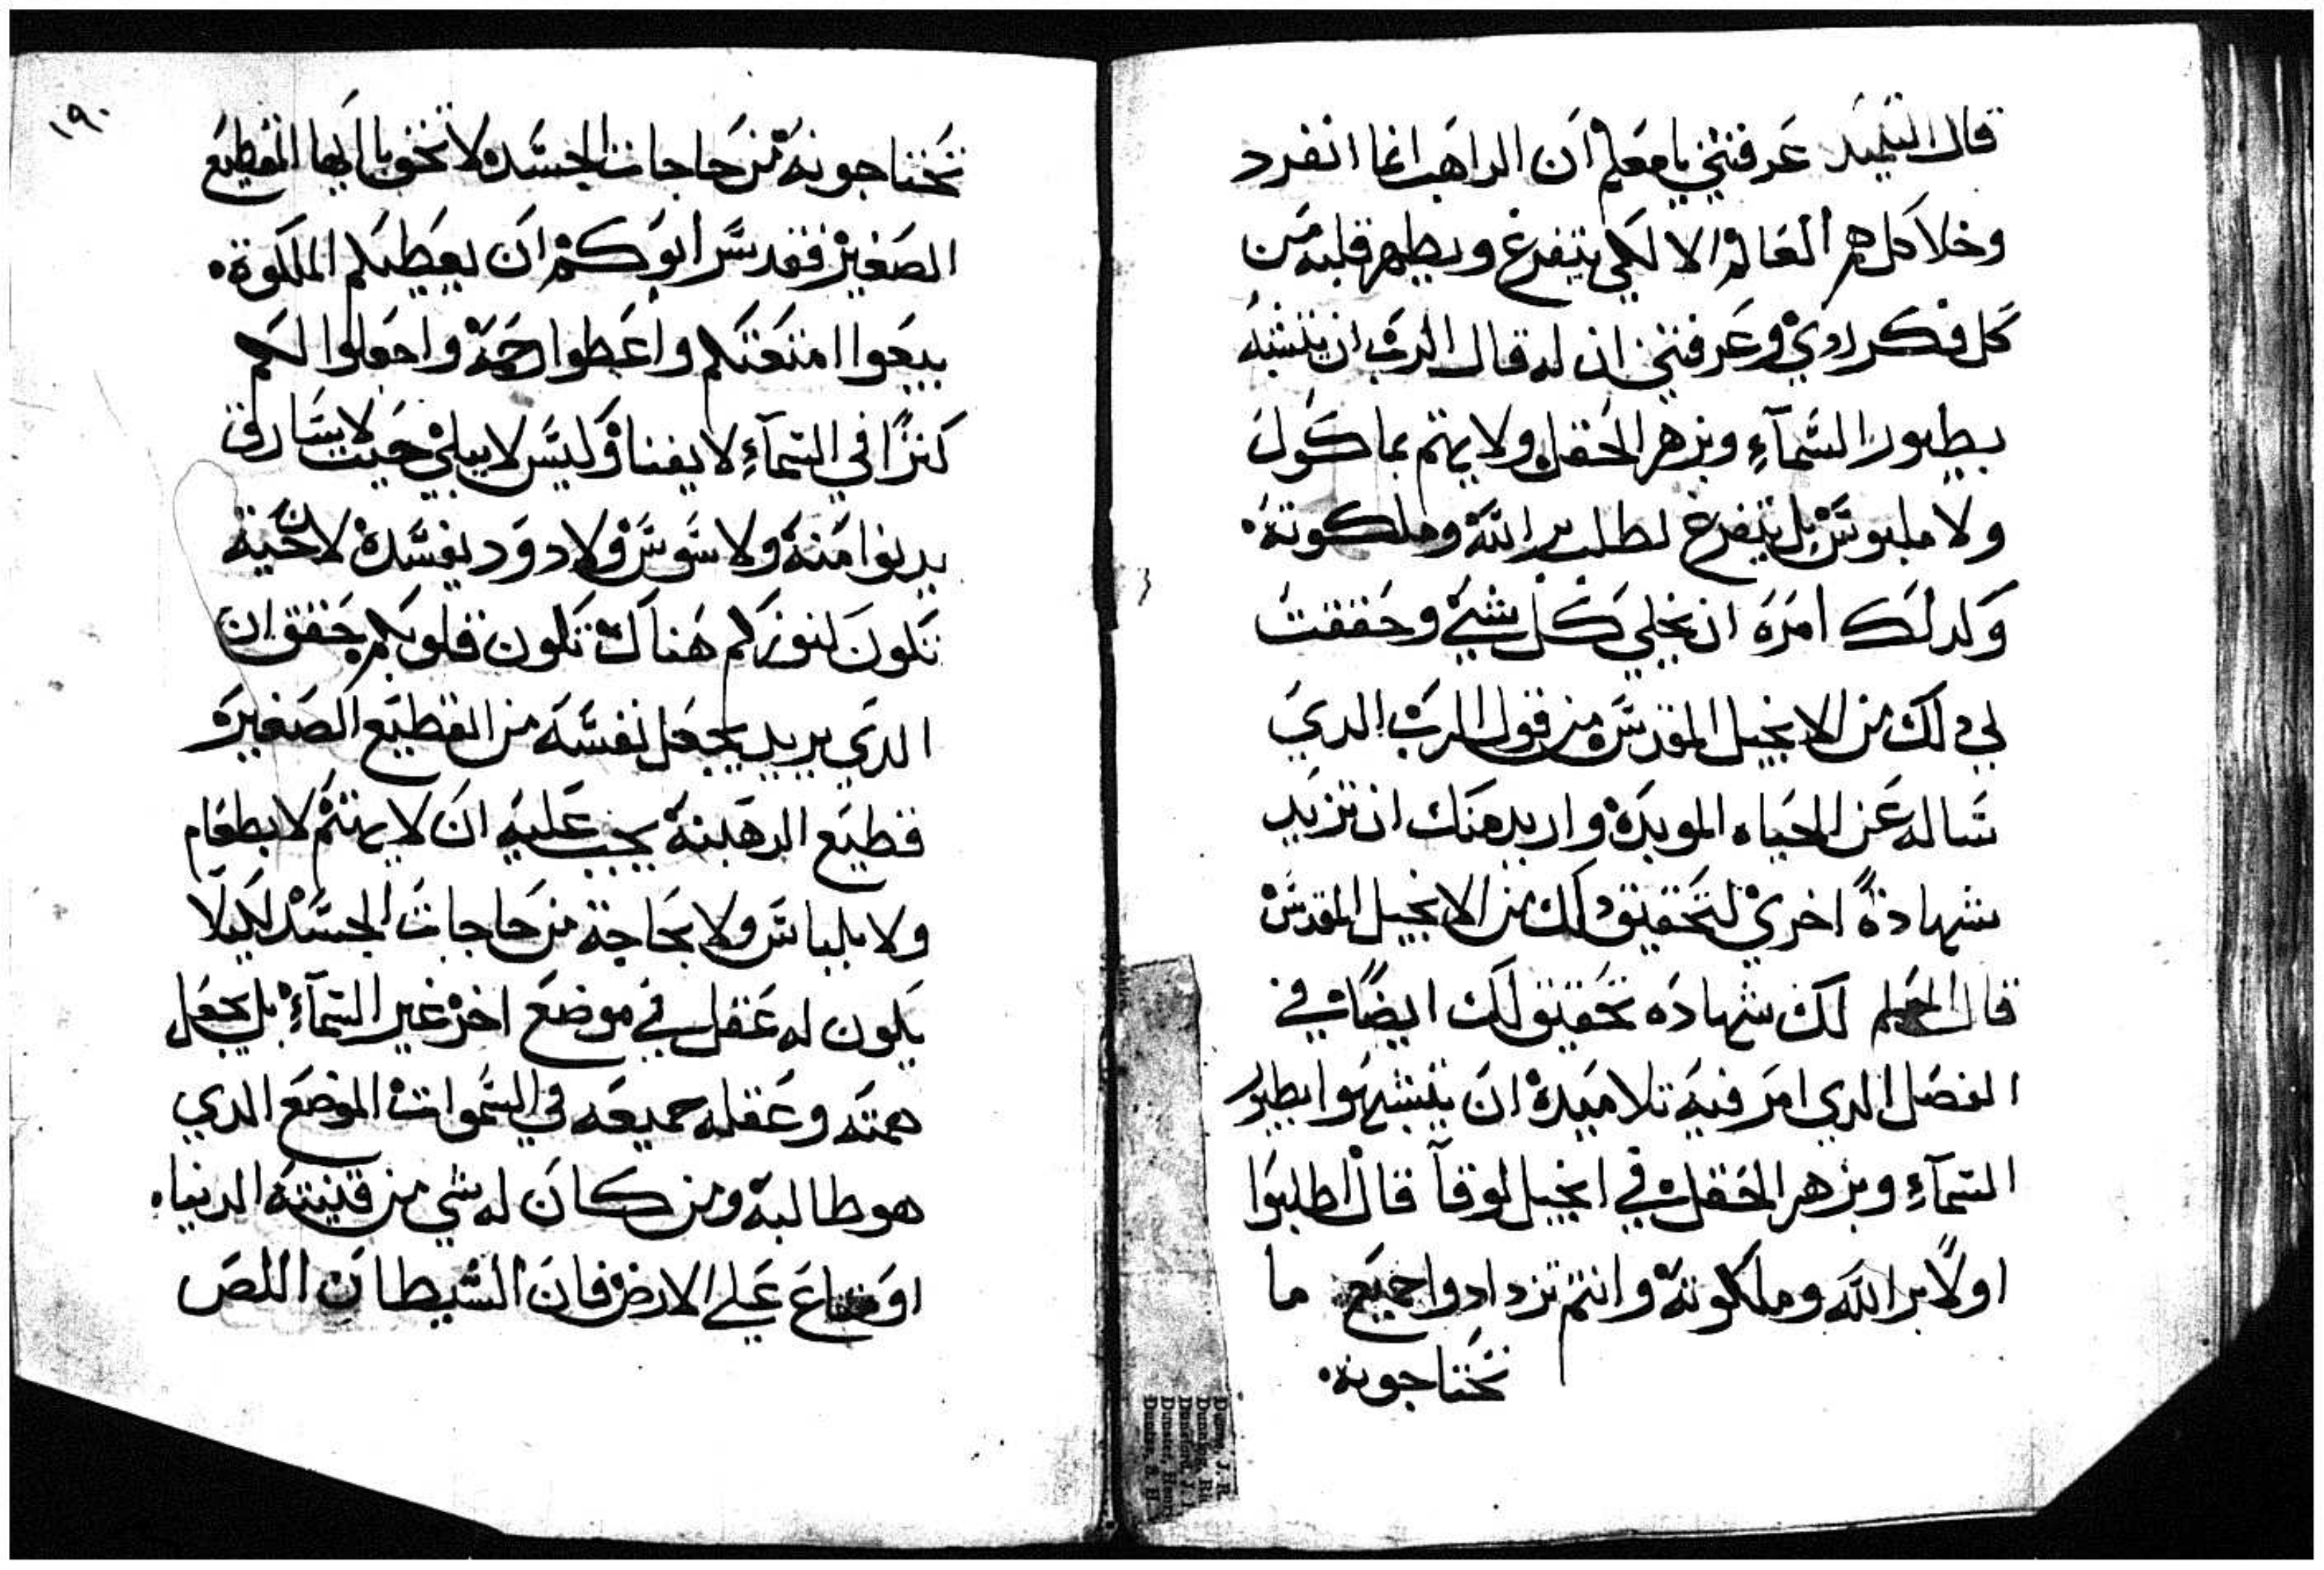 قال التلميد عرفتني يا معلم ان الراهب انما انفرد
وخلا كل هم العالم الا لكي يتفرغ ويطهر قلبه من
كل فكر ردي وعرفتني ان له قال الرب ان يتشبه
بطيور السماء وبزهر الحقل ولا يهتم بماكول
ولا ملبوس بل يتفرغ لطلب بر الله وملكوته
وكدلك امره ان يخلي كل شي وحققت
لي دلك من الانجيل المقدس من قول الرب الدي
ساله عن الحياه الموبده واريد منك ان تزيد
شهادة اخري لتحقيق دلك من الانجيل المقدس
قال المعلم لك شهاده تحقيق لك ايضا في
الفصل الدي امر فيه تلاميده ان يتشبهوا بطيور
السماء وبزهر الحقل في انجيل لوقا قال اطلبوا
اولا بر الله وملكوته وانتم تزدادوا جميع ما
تحتاجونه
١٩٠
تحتاجونه من حاجات الجسد لا تخف يا ايها القطيع
الصغير فقد سر ابوكم ان يعطيكم الملكوة
بيعوا امتعتكم واعطوا رحمة واجعلوا لكم
كنزا في السماء لا يفنا وكيس لا يبلي حيث لا سارق
يدنوا منه ولا سوس ولا دود يفسده لان حيث
تكون كنوزكم هناك تكون قلوبكم حقق ان
الدي يريد يجعل نفسه من القطيع الصغير
قطيع الرهبنة يجب عليه ان لا يهتم لا بطعام
ولا بلباس ولا بحاجة من حاجات الجسد لكيلا
يكون له عقل في موضع اخر غير السماء بل يجعل
همته وعقله جميعه في السموات الموضع الدي
هو طالبه ومن كان له شي من قنيته الدنيا
او متاع علي الارض فان الشيطان اللص